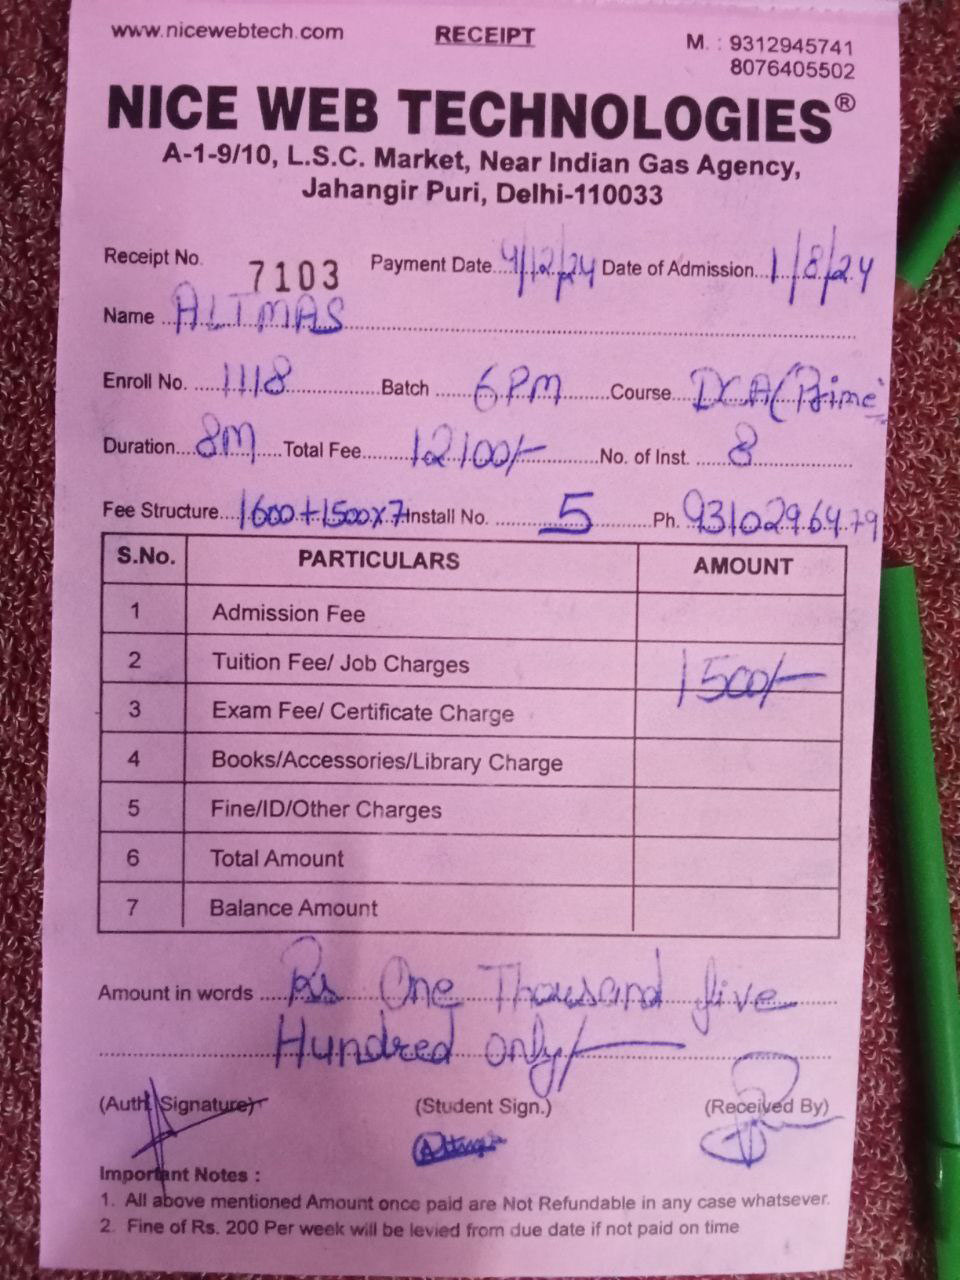 www.nicewebtech.com RECEIPT M. : 9312945741
8076405502
NICE WEB TECHNOLOGIES®
A-1-9/10, L.S.C. Market, Near Indian Gas Agency,
Jahangir Puri, Delhi-110033
Receipt No. 7103 Payment Date 4/12/24 Date of Admission 1/8/24
Name ALTMAS
Enroll No. 1118 Batch 6PM Course DCA(Prime)
Duration 8M Total Fee 12100/- No. of Inst. 8
Fee Structure 1600+1500x7 Install No. 5 Ph. 9310296479
S.No. PARTICULARS AMOUNT
1 Admission Fee
2 Tuition Fee/ Job Charges 1500/-
3 Exam Fee/ Certificate Charge
4 Books/Accessories/Library Charge
5 Fine/ID/Other Charges
6 Total Amount
7 Balance Amount
Amount in words Rs One Thousand five
Hundred only/-
(Auth. Signature) (Student Sign.) (Received By)
Important Notes :
1. All above mentioned Amount once paid are Not Refundable in any case whatsever.
2. Fine of Rs. 200 Per week will be levied from due date if not paid on time